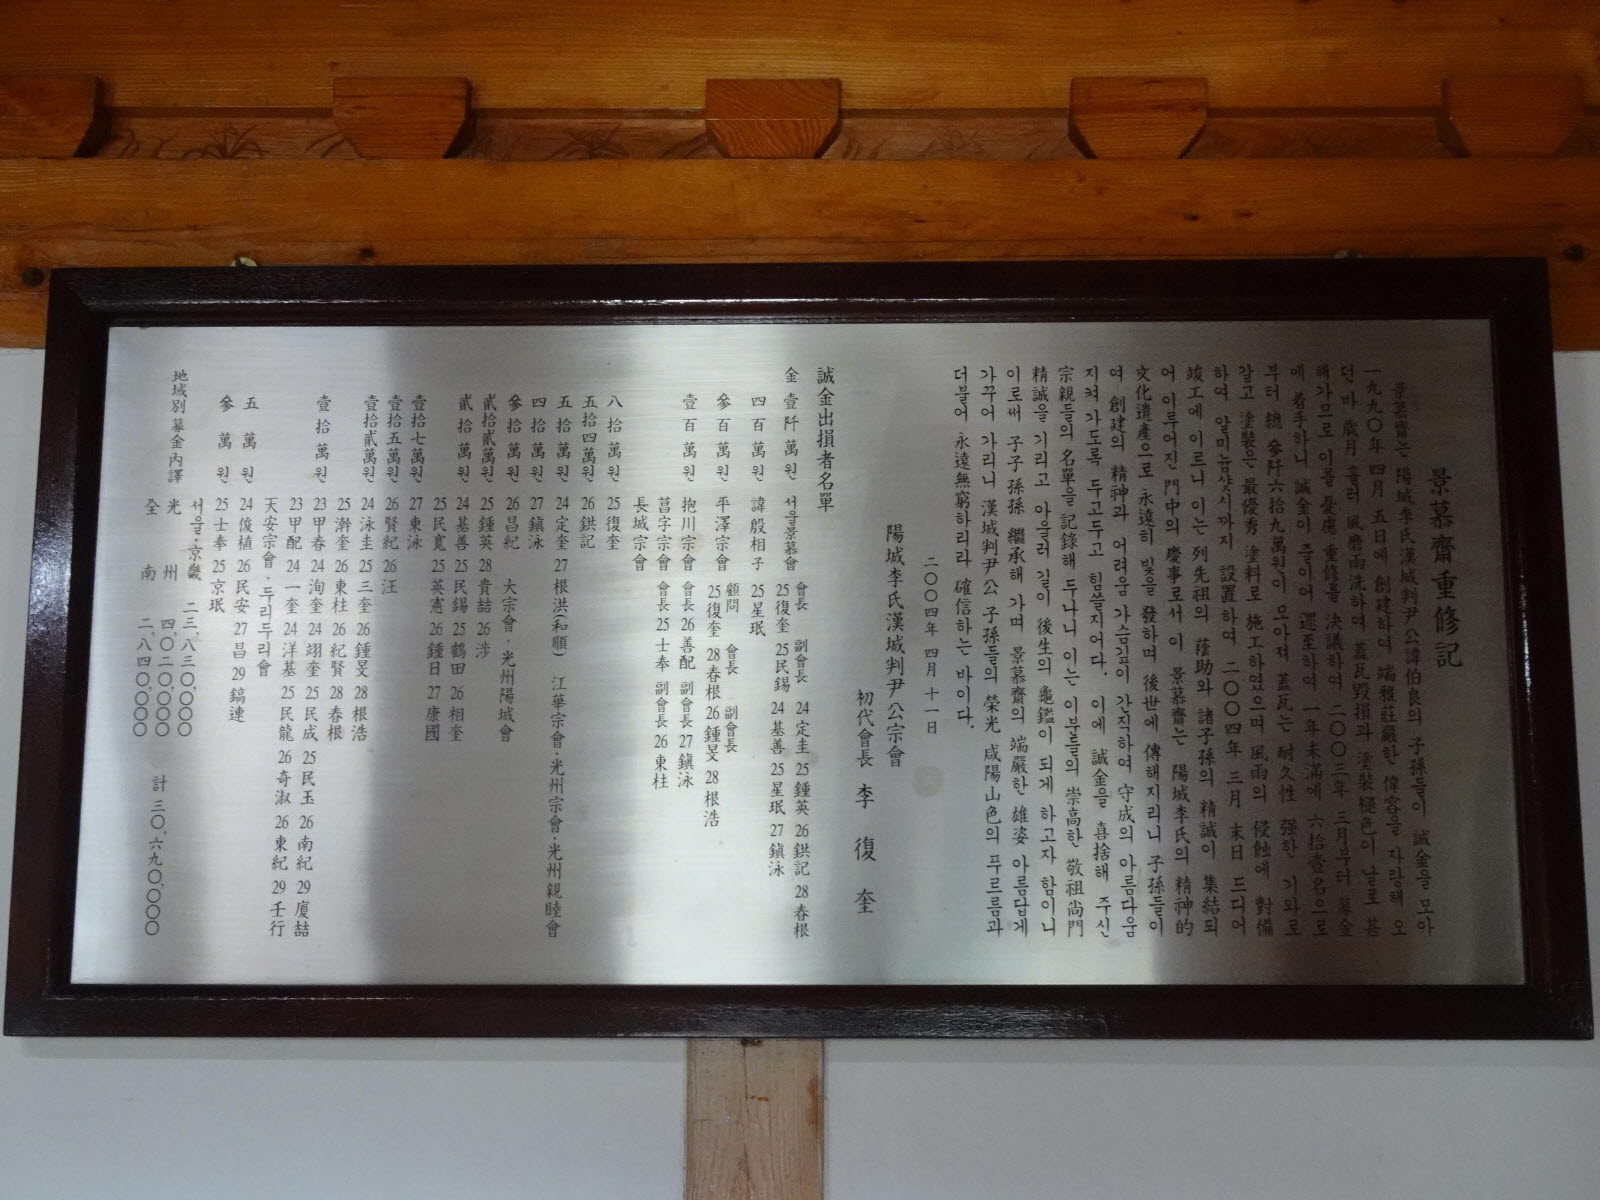 景慕齋重修記
景慕齋는 陽城李氏漢城判尹公諱伯良의 子孫들이 誠金을 모아
一九九〇年 四月 五日에 創建하여 端雅莊嚴한 偉容을 자랑해 오
던바 歲月 흘러 風磨雨洗하여 蓋瓦毀損과 塗裝褪色이 날로 甚
해가므로 이를 憂慮 重修를 決議하여 二〇〇三年 三月부터 募金
에 着手하니 誠金이 줄이어 遝至하여 一年未滿에 六拾壹名으로
부터 總 參阡六拾九萬원이 모아져 蓋瓦는 耐久性 强한 기와로
갈고 塗裝은 最優秀 塗料로 施工하였으며 風雨의 侵蝕에 對備
하여 알미늄샷시까지 設置하여 二〇〇四年 三月 末日 드디어
竣工에 이르니 이는 列先祖의 蔭助와 諸子孫의 精誠이 集結되
어 이루어진 門中의 慶事로서 이 景慕齋는 陽城李氏의 精神的
文化遺產으로 永遠히 빛을 發하며 後世에 傳해지리니 子孫들이
여 創建의 精神과 어려움 가슴깊이 간직하여 守成의 아름다움
지켜 가도록 두고두고 힘쓸지어다. 이에 誠金을 喜捨해 주신
宗親들의 名單을 記錄해 두나니 이는 이분들의 崇高한 敬祖尙門
精誠을 기리고 아울러 길이 後生의 龜鑑이 되게 하고자 함이니
이로써 子子孫孫 繼承해 가며 景慕齋의 端嚴한 雄姿 아름답게
가꾸어 가리니 漢城判尹公 子孫들의 榮光 咸陽山色의 푸르름과
더불어 永遠無窮하리라 確信하는 바이다.
二〇〇四年 四月 十一日
陽城李氏漢城判尹公宗會
初代會長 李 復 奎
誠金出損者名單
金 壹阡萬원 서울景慕會 會長 25復奎 副會長 25民錫 24定圭 24基善 25鍾英 25星珉 26鉉記 27鎭泳 28春根
四百萬원 諱殷相子 25星珉
參百萬원 平澤宗會 顧問 25復奎 會長 28春根 副會長 26鍾旻 28根浩
壹百萬원 抱川宗會 會長 26善配 副會長 27鎭泳
菖字宗會 會長 25士奉 副會長 26東柱
長城宗會
八拾萬원 25復奎
五拾四萬원 26鉷記
五拾萬원 24定奎 27根洪(和順) 江華宗會·光州宗會·光州親睦會
四拾萬원 27鎭泳
參拾萬원 26昌紀 大宗會·光州陽城會
貳拾貳萬원 25鍾英 28貴喆 26涉
貳拾萬원 24基善 25民錫 25鶴田 26相奎
25民寬 25英憲 26鍾日 27康國
壹拾七萬원 27東泳
壹拾五萬원 26賢紀 26汪
壹拾貳萬원 24泳圭 25三奎 26鍾旻 28根浩
壹拾萬원 25澣奎 26東柱 26紀賢 28春根
23甲春 24洵奎 24翊奎 25民成 25民玉 26南紀 29廈喆
23甲配 24一奎 24洋基 25民龍 26奇淑 26東紀 29壬行
天安宗會·두리두리會
五萬원 24俊植 26民安 27昌 29鎬連
參萬원 25士奉 25京珉
地域別 募金內譯 서울·京畿 二三,八三〇,〇〇〇
光州 四,〇二〇,〇〇〇
全南 二,八四〇,〇〇〇
計 三〇,六九〇,〇〇〇